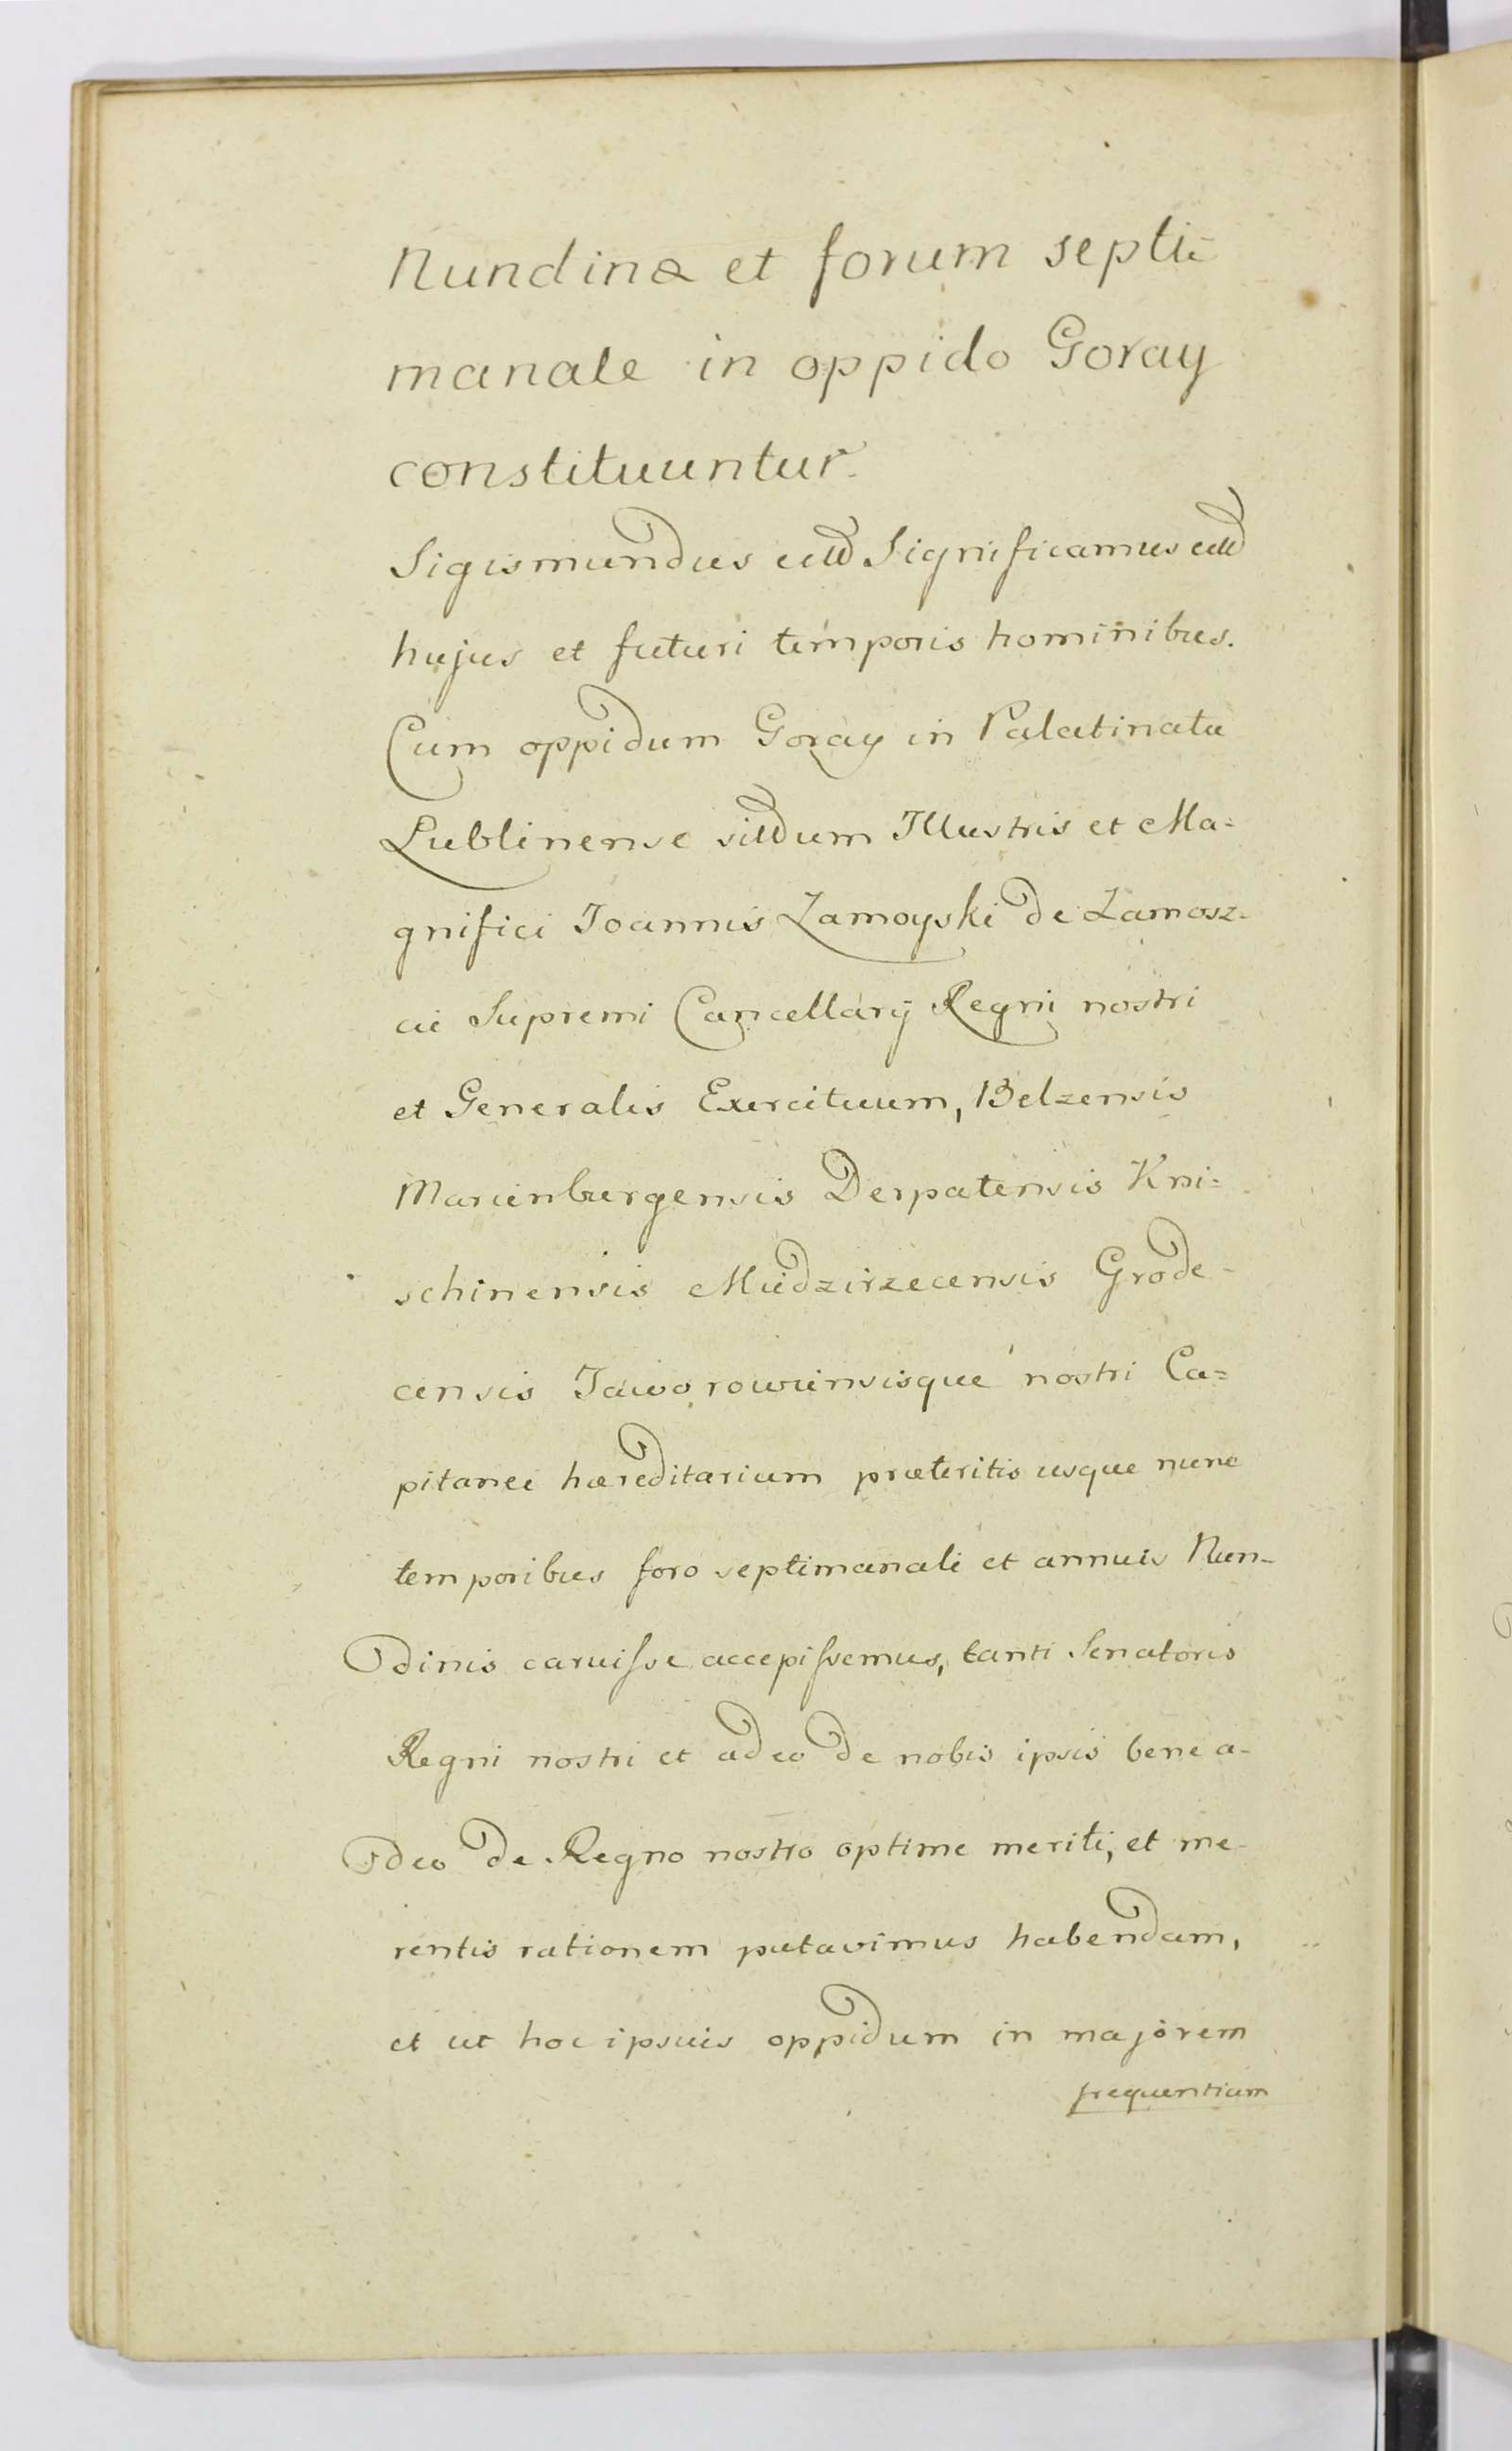 Nundinæ et forum septi=
manale in oppido Goray
constituuntur.
Sigismundus etct Significamus etct
hujus et futuri temporis hominibus.
Cum oppidum Goray in Palatinatu
Lublinense situm Illustris et Ma=
gnifici Joannis Zamoyski de Zamosz-
cie Supremi Cancellarij Regni nostri
et Generalis Exercituum, Belzensis
Marienburgensis Derpatensis Kni=
schinensis Miedzirzecensis Grode-
censis Jaworowiensisque nostri Ca=
pitanei hæreditarium præteritis usque nunc
temporibus foro septimanali et annuis Nun-
dinis caruisse accepissemus, tanti Senatoris
Regni nostri et adeo de nobis ipsis bene a-
deo de Regno nostro optime meriti, et me-
rentis rationem putavimus habendam,
et ut hoc ipsius oppidum in majorem
frequentiam